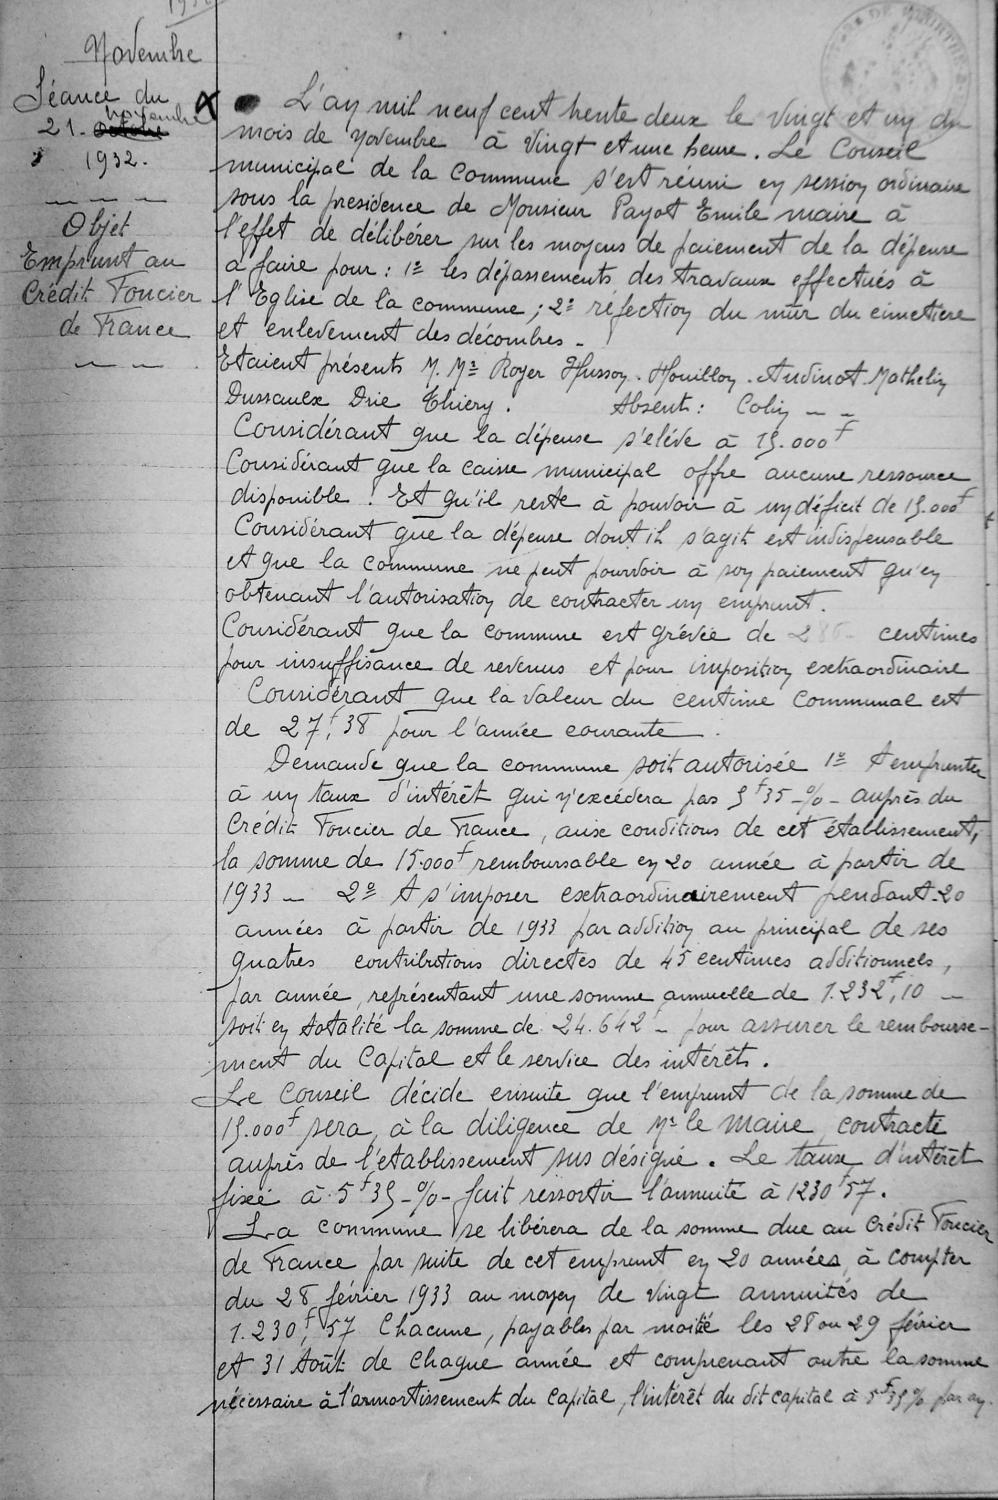 Novembre
Séance du
novembre
21. Octobre
1932.
Objet
Emprunt au
Crédit Foncier
de France
L'an mil neuf cent trente deux le vingt et un du
mois de novembre à vingt et une heure. Le Conseil
municipal de la commune s'est réuni en session ordinaire
sous la presidence de Monsieur Payot Emile maire à
l'effet de délibérer sur les moyens de paiement de la dépense
à faire pour : 1º les dépassements des travaux effectués à
l'Eglise de la commune ; 2º réfection du mur du cimetiere
et enlevement des décombres -
Etaient présents M. Mrs Royer Husson. Houillon. Audinot. Mathelin
Dussaulx Drie Thiery. Absent : Colin - -
Considérant que la dépense s'élève à 15.000f
Considérant que la caisse municipal offre aucune ressource
disponible ! Et qu'il reste à pouvoir à un déficit de 15.000f
Considérant que la dépense dont il s'agit est indispensable
et que la commune ne peut pourvoir à son paiement qu'en
obtenant l'autorisation de contracter un emprunt.
Considérant que la commune est grévée de 286 - centimes
pour insuffisance de revenus et pour imposition extraordinaire
Considérant que la valeur du centime communal est
de 27f,38 pour l'année courante.
Demande que la commune soit autorisée 1º A emprunter
à un taux d'intérêt qui n'excédera pas 5f35 -%- auprès du
Crédit Foncier de France, aux conditions de cet établissement,
la somme de 15.000f remboursable en 20 année à partir de
1933 - 2º A s'imposer extraordinairement pendant 20
années à partir de 1933 par addition au principal de ses
quatres contributions directes de 45 centimes additionnels,
par année, représentant une somme annuelle de 1.232f,10 -
soit en totalité la somme de 24.642f - pour assurer le rembourse-
ment du Capital et le service des intérêts.
Le Conseil décide ensuite que l'emprunt de la somme de
15.000f sera, à la diligence de Mr le Maire, contracté
auprès de l'etablissement sus désigné. Le taux d'intérêt
fixé à 5f35 -%- fait ressortir l'annuité à 1230f57.
La commune se libérera de la somme due au Crédit Foncier
de France par suite de cet emprunt en 20 années, à compter
du 28 février 1933 au moyen de vingt annuités de
1.230f,57 Chacune, payables par moitié les 28 ou 29 février
et 31 Août de chaque année et comprenant outre la somme
nécessaire à l'armortissement du capital, l'intérêt du dit capital à 5f35% par an.